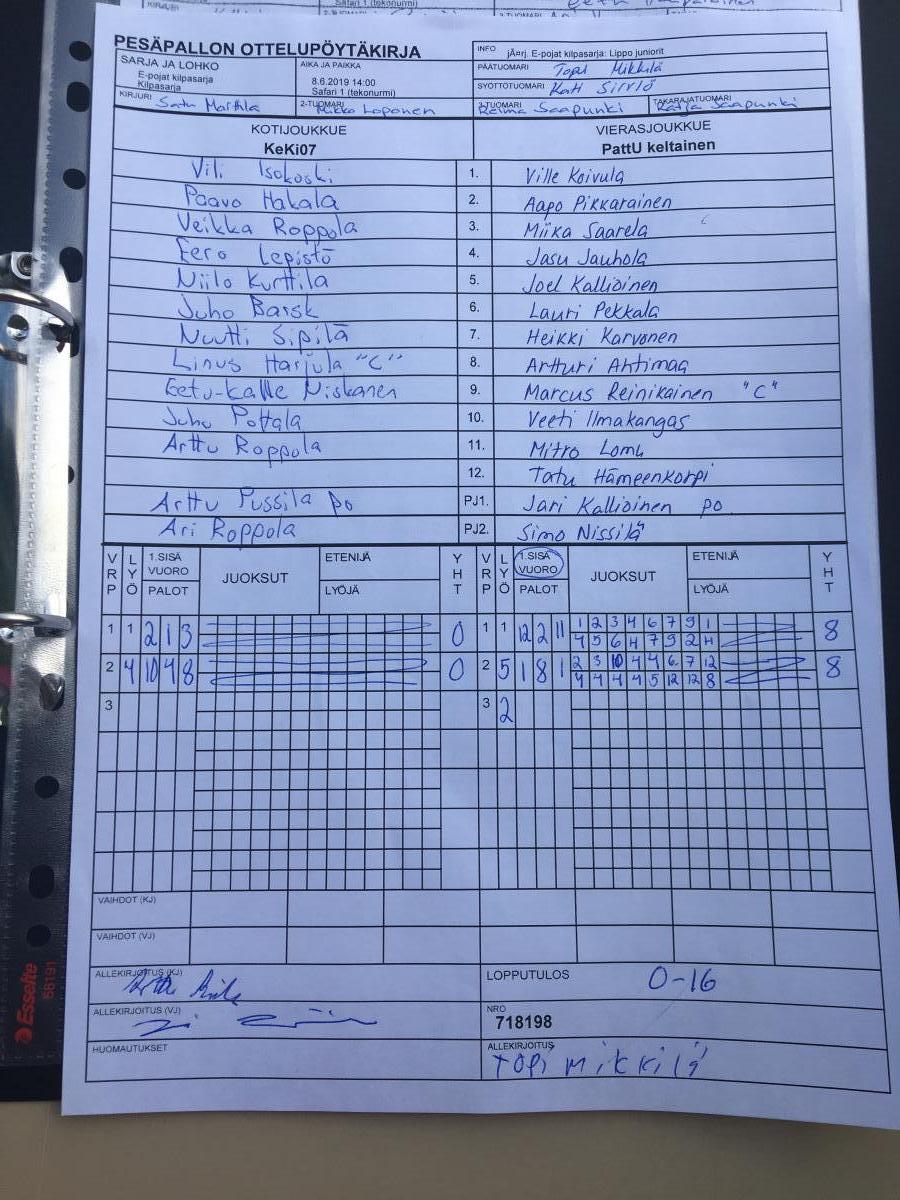 PESÄPALLON OTTELUPÖYTÄKIRJA
INFO jÄ¤rj. E-pojat kilpasarja: Lippo juniorit
SARJA JA LOHKO
E-pojat kilpasarja
Kilpasarja
AIKA JA PAIKKA
8.6.2019 14:00
Safari 1 (tekonurmi)
PÄÄTUOMARI Topi Mikkilä
SYÖTTÖTUOMARI Kati Sirviö
KIRJURI Satu Marttila
2-TUOMARI Mikko Loponen
3-TUOMARI Reima Saapunki
TAKARAJATUOMARI Katja Saapunki
KOTIJOUKKUE
KeKi07
VIERASJOUKKUE
PattU keltainen
Vili Isokoski 1. Ville Koivula
Paavo Hakala 2. Aapo Pikkarainen
Veikka Roppola 3. Miika Saarela
Eero Lepistö 4. Jasu Jauhola
Niilo Kurttila 5. Joel Kallioinen
Juho Barsk 6. Lauri Pekkala
Nuutti Sipilä 7. Heikki Karvonen
Linus Harjula "C" 8. Artturi Ahtimaa
Eetu-Kalle Niskanen 9. Marcus Reinikainen "C"
Juho Pottala 10. Veeti Ilmakangas
Arttu Roppola 11. Mitro Lomu
12. Tatu Hämeenkorpi
Arttu Pussila po PJ1. Jari Kallioinen po
Ari Roppola PJ2. Simo Nissilä
VRP LYÖ 1.SISÄ VUORO PALOT JUOKSUT ETENIJÄ LYÖJÄ YHT
VRP LYÖ 1.SISÄ VUORO PALOT JUOKSUT ETENIJÄ LYÖJÄ YHT
1 1 2 1 3 0
1 1 12 2 11 1 2 3 4 6 7 9 1 8
4 5 6 4 7 9 2 4
2 4 10 4 8 0
2 5 1 8 1 2 3 10 4 4 6 7 12 8
4 4 4 4 5 12 12 8
3
3 2
VAIHDOT (KJ)
VAIHDOT (VJ)
ALLEKIRJOITUS (KJ)
LOPPUTULOS 0-16
ALLEKIRJOITUS (VJ)
NRO
718198
HUOMAUTUKSET
ALLEKIRJOITUS
Topi Mikkilä
Esselte
56191